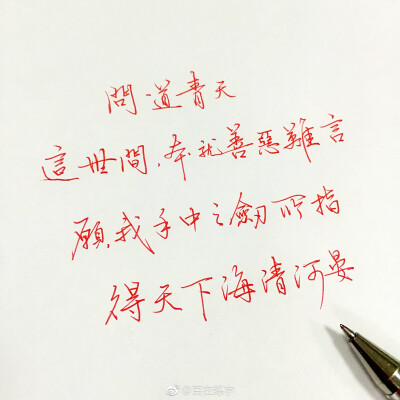 問道青天
這世間，本就善惡難言
願，我手中之劍所指
得天下海清河晏